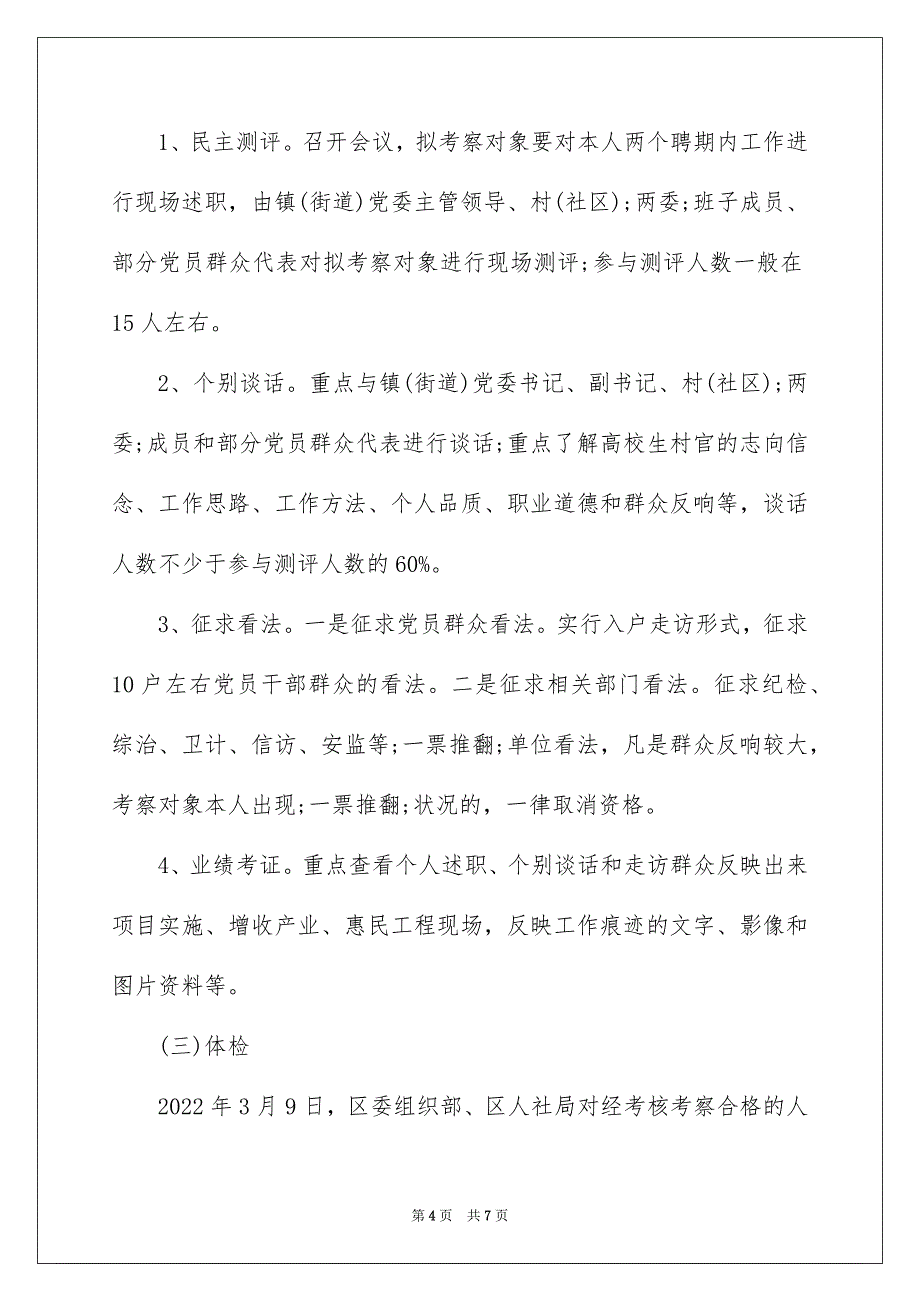 1、民主测评。召开会议，拟考察对象要对本人两个聘期内工作进
行现场述职，由镇(街道)党委主管领导、村(社区);两委;班子成员、
部分党员群众代表对拟考察对象进行现场测评;参与测评人数一般在
15 人左右。
2、个别谈话。重点与镇(街道)党委书记、副书记、村(社区);两
委;成员和部分党员群众代表进行谈话;重点了解高校生村官的志向信
念、工作思路、工作方法、个人品质、职业道德和群众反响等，谈话
人数不少于参与测评人数的 60%。
3、征求看法。一是征求党员群众看法。实行入户走访形式，征求
10 户左右党员干部群众的看法。二是征求相关部门看法。征求纪检、
综治、卫计、信访、安监等;一票推翻;单位看法，凡是群众反响较大，
考察对象本人出现;一票推翻;状况的，一律取消资格。
4、业绩考证。重点查看个人述职、个别谈话和走访群众反映出来
项目实施、增收产业、惠民工程现场，反映工作痕迹的文字、影像和
图片资料等。
(三)体检
2022 年 3 月 9 日，区委组织部、区人社局对经考核考察合格的人
第 4 页 共 7 页